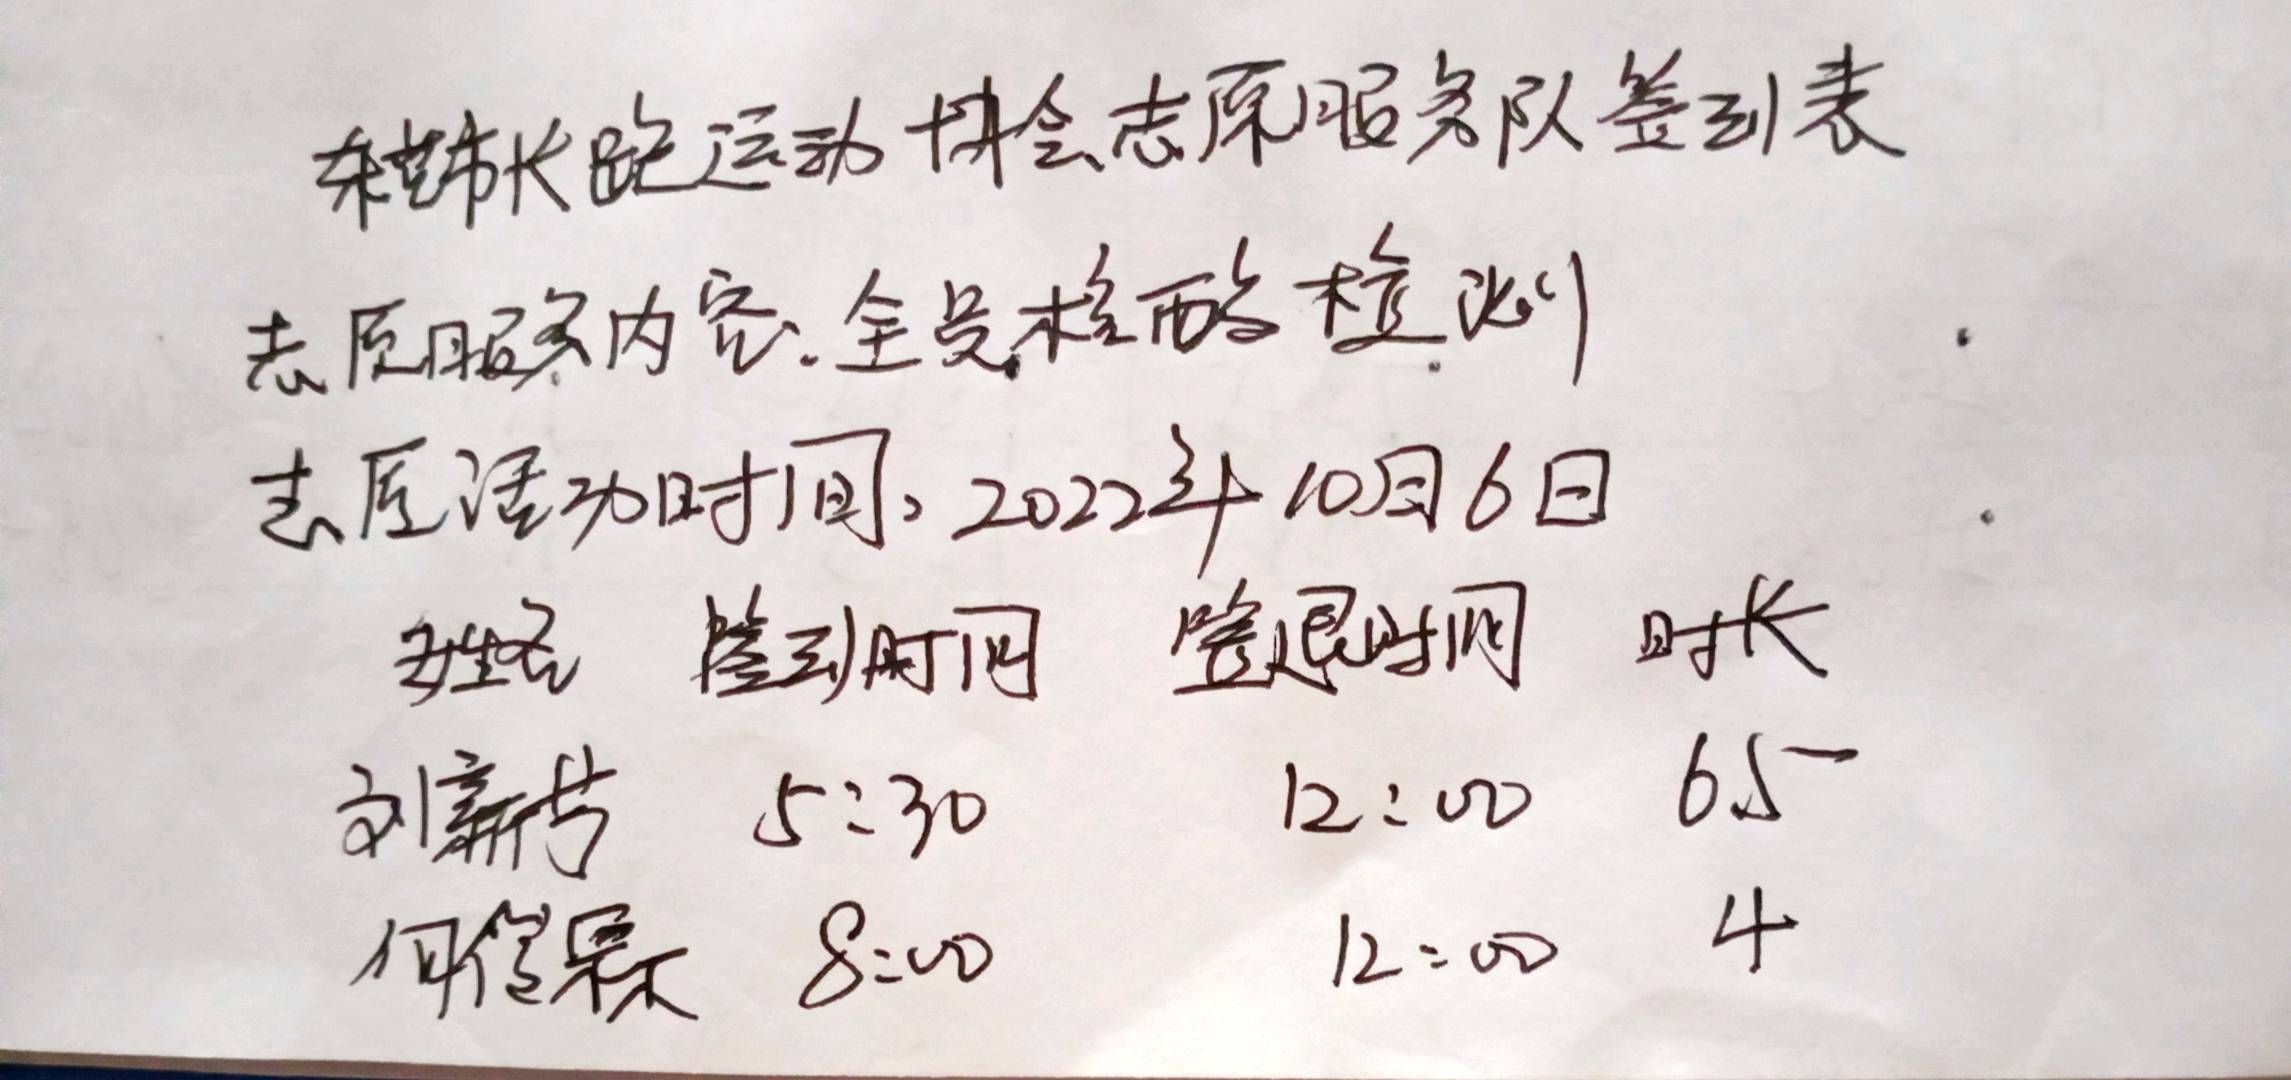 长跑运动协会志愿服务队签到表
志愿服务内容:全员核酸检测
志愿活动时间:2022年10月6日
姓名 签到时间 签退时间 时长
刘新芳 5:30 12:00 6.5
何 8:00 12:00 4